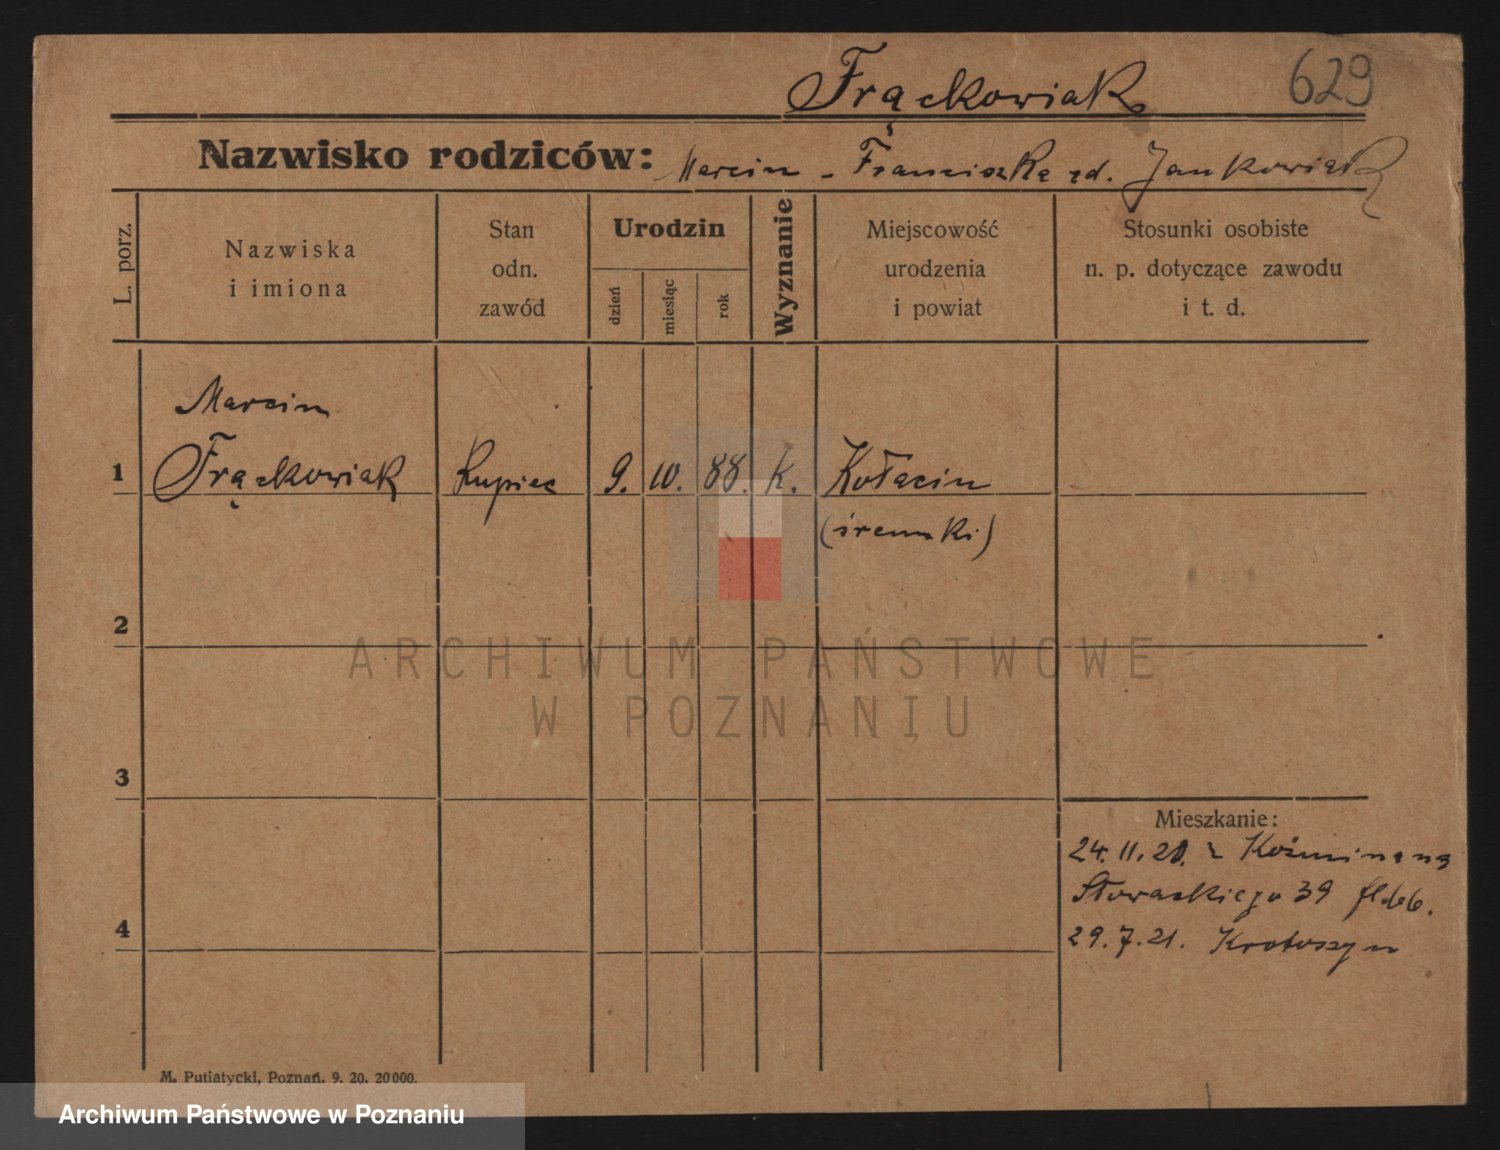 Frąckowiak 629
Nazwisko rodziców: Marcin - Franciszka zd. Jankowiak
L. porz.
Nazwiska
i imiona
Stan
odn.
zawód
Urodzin
dzień
miesiąc
rok
Wyznanie
Miejscowość
urodzenia
i powiat
Stosunki osobiste
n. p. dotyczące zawodu
i t. d.
Marcin
1 Frąckowiak Kupiec 9. 10. 88. k. Kołacin
(śremski)
2
ARCHIWUM PAŃSTWOWE
W POZNANIU
3
Mieszkanie:
24. 11. 20. z Koźmina na
Słowackiego 39
4
29. 7. 21. Krotoszyn
M. Putiatycki, Poznań. 9. 20. 20000.
Archiwum Państwowe w Poznaniu